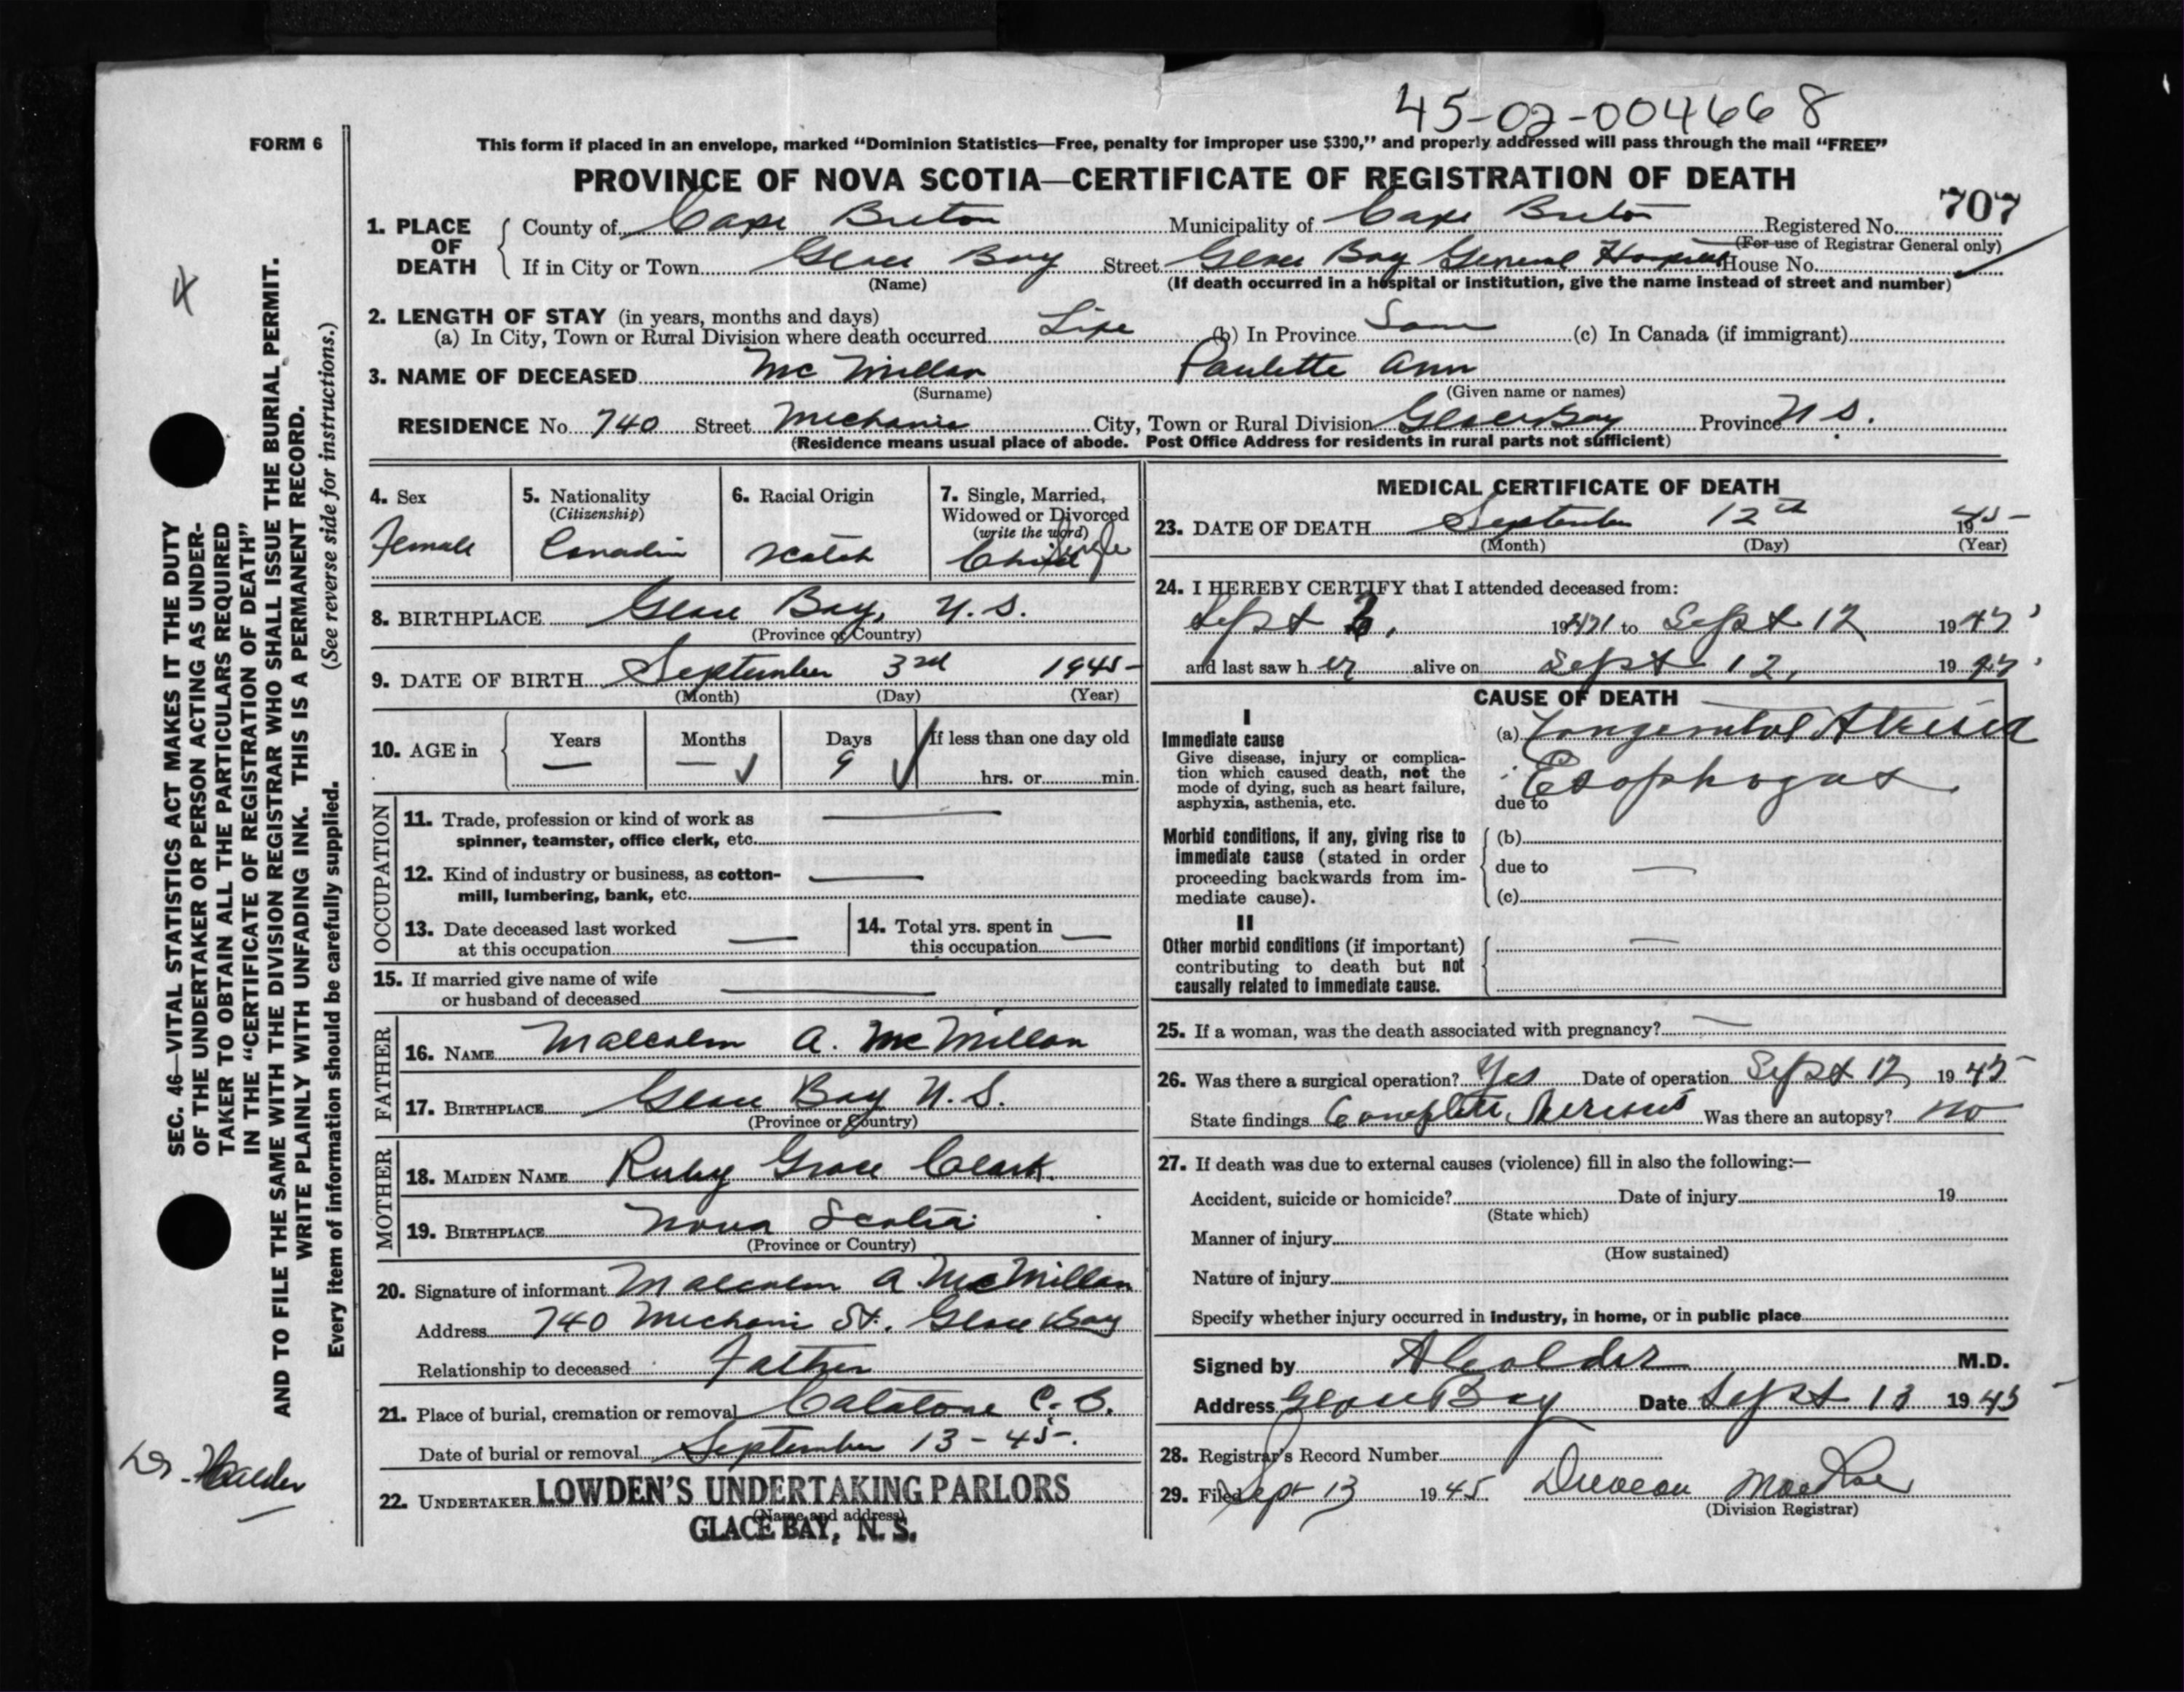 45-02-004668
FORM 6
This form if placed in an envelope, marked “Dominion Statistics—Free, penalty for improper use $300,” and properly addressed will pass through the mail “FREE”
PROVINCE OF NOVA SCOTIA—CERTIFICATE OF REGISTRATION OF DEATH
707
1. PLACE OF DEATH County of Cape Breton Municipality of Cape Breton Registered No.
(For use of Registrar General only)
If in City or Town Glace Bay Street Glace Bay General Hospital House No.
(Name) (If death occurred in a hospital or institution, give the name instead of street and number)
2. LENGTH OF STAY (in years, months and days)
(a) In City, Town or Rural Division where death occurred Life (b) In Province Same (c) In Canada (if immigrant)
3. NAME OF DECEASED Mc Millan Paulette Ann
(Surname) (Given name or names)
RESIDENCE No. 740 Street Mechanic City, Town or Rural Division Glace Bay Province N.S.
(Residence means usual place of abode. Post Office Address for residents in rural parts not sufficient)
4. Sex
Female
5. Nationality
(Citizenship)
Canadin
6. Racial Origin
Scotch
7. Single, Married,
Widowed or Divorced
(write the word)
Child Single
8. BIRTHPLACE Glace Bay, N.S.
(Province or Country)
9. DATE OF BIRTH September 3rd 1945
(Month) (Day) (Year)
10. AGE in Years — Months — Days 9 If less than one day old
hrs. or min.
OCCUPATION
11. Trade, profession or kind of work as
spinner, teamster, office clerk, etc. —
12. Kind of industry or business, as cotton-
mill, lumbering, bank, etc. —
13. Date deceased last worked
at this occupation —
14. Total yrs. spent in
this occupation —
15. If married give name of wife
or husband of deceased —
FATHER
16. NAME Malcolm A. McMillan
17. BIRTHPLACE Glace Bay N.S.
(Province or Country)
MOTHER
18. MAIDEN NAME Ruby Grace Clark.
19. BIRTHPLACE Nova Scotia
(Province or Country)
20. Signature of informant Malcolm A McMillan
Address 740 Mechanic St. Glace Bay
Relationship to deceased Father
21. Place of burial, cremation or removal Catalone C.B.
Date of burial or removal September 13-45-.
22. UNDERTAKER LOWDEN'S UNDERTAKING PARLORS
(Name and address)
GLACE BAY, N. S.
MEDICAL CERTIFICATE OF DEATH
23. DATE OF DEATH September 12th 1945
(Month) (Day) (Year)
24. I HEREBY CERTIFY that I attended deceased from:
Sept 19 to Sept 12 1945
and last saw her alive on Sept 12, 1945
CAUSE OF DEATH
I
Immediate cause
Give disease, injury or complica-
tion which caused death, not the
mode of dying, such as heart failure,
asphyxia, asthenia, etc.
(a) Congenital Atresia
Esophogas
due to
Morbid conditions, if any, giving rise to
immediate cause (stated in order
proceeding backwards from im-
mediate cause).
(b)
due to —
(c)
II
Other morbid conditions (if important)
contributing to death but not
causally related to immediate cause.
—
25. If a woman, was the death associated with pregnancy? —
26. Was there a surgical operation? Yes Date of operation Sept 12, 1945
State findings Complete Was there an autopsy? No
27. If death was due to external causes (violence) fill in also the following:—
Accident, suicide or homicide? Date of injury 19
(State which)
Manner of injury
(How sustained)
Nature of injury
Specify whether injury occurred in industry, in home, or in public place
Signed by M.D.
Address Glace Bay Date Sept 13 1945
28. Registrar's Record Number
29. Filed Sept 13 1945 Duncan MacRae
(Division Registrar)
SEC. 46—VITAL STATISTICS ACT MAKES IT THE DUTY
OF THE UNDERTAKER OR PERSON ACTING AS UNDER-
TAKER TO OBTAIN ALL THE PARTICULARS REQUIRED
IN THE “CERTIFICATE OF REGISTRATION OF DEATH”
AND TO FILE THE SAME WITH THE DIVISION REGISTRAR WHO SHALL ISSUE THE BURIAL PERMIT.
WRITE PLAINLY WITH UNFADING INK. THIS IS A PERMANENT RECORD.
Every item of information should be carefully supplied. (See reverse side for instructions.)
Dr.